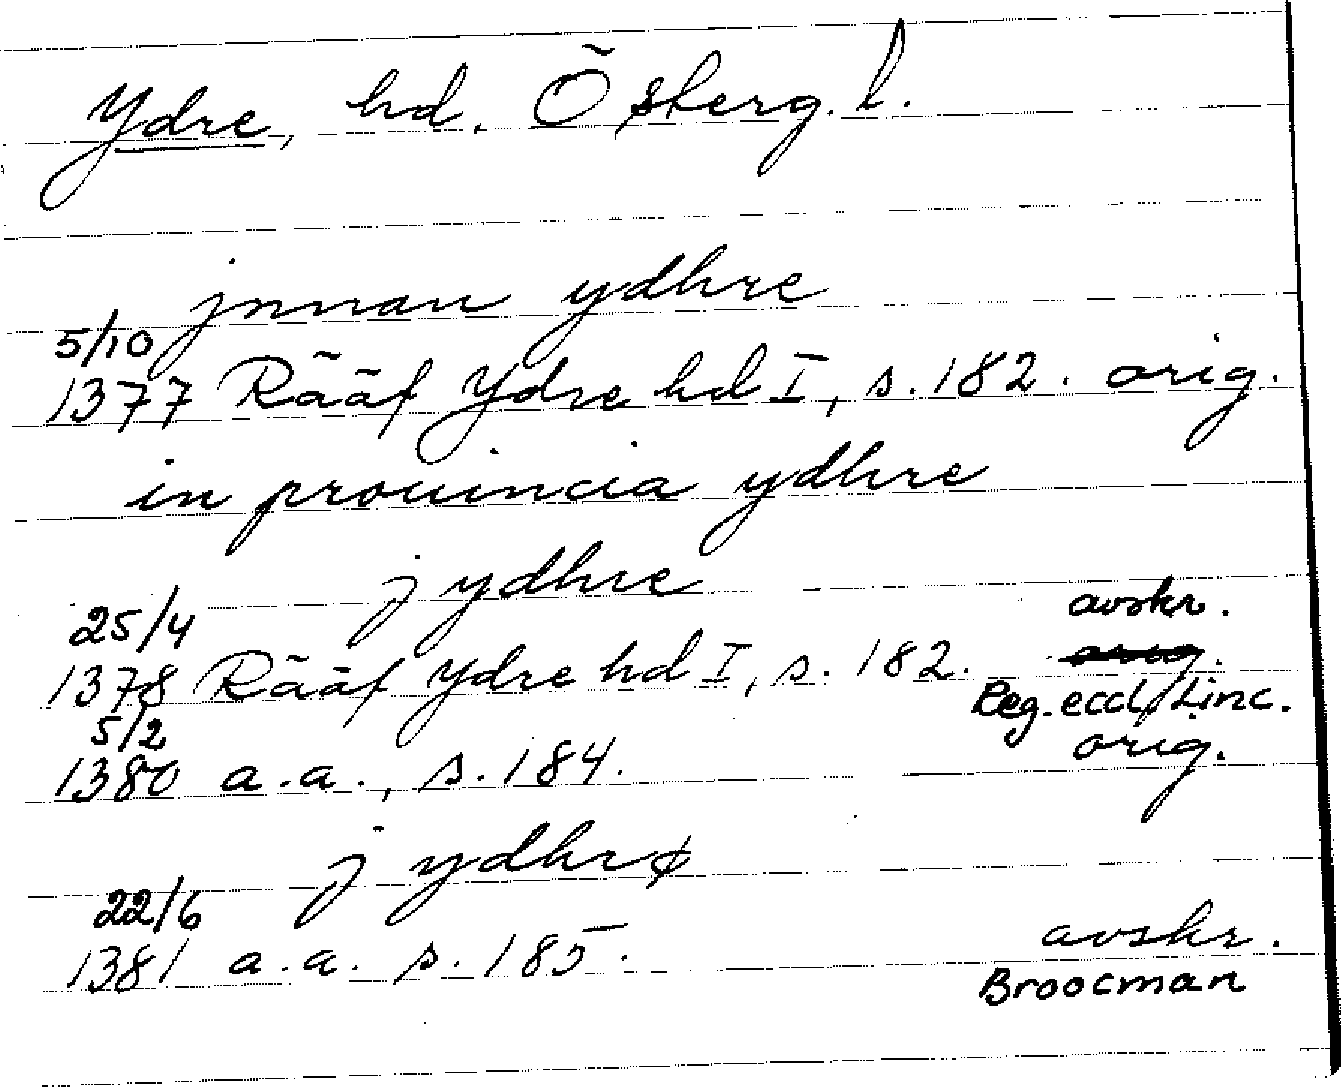 Ydre, hd. Österg. l.
jnnan ydhre
5/10
1377 Rääf Ydre hd I, s. 182. orig.
in prouincia ydhre
j ydhre
25/4 avskr.
1378 Rääf Ydre hd I, s. 182. orig.
Reg. eccl. Linc.
5/2
1380 a.a., s. 184. orig.
j ydhrø
22/6
1381 a.a. s. 185. avskr.
Broocman